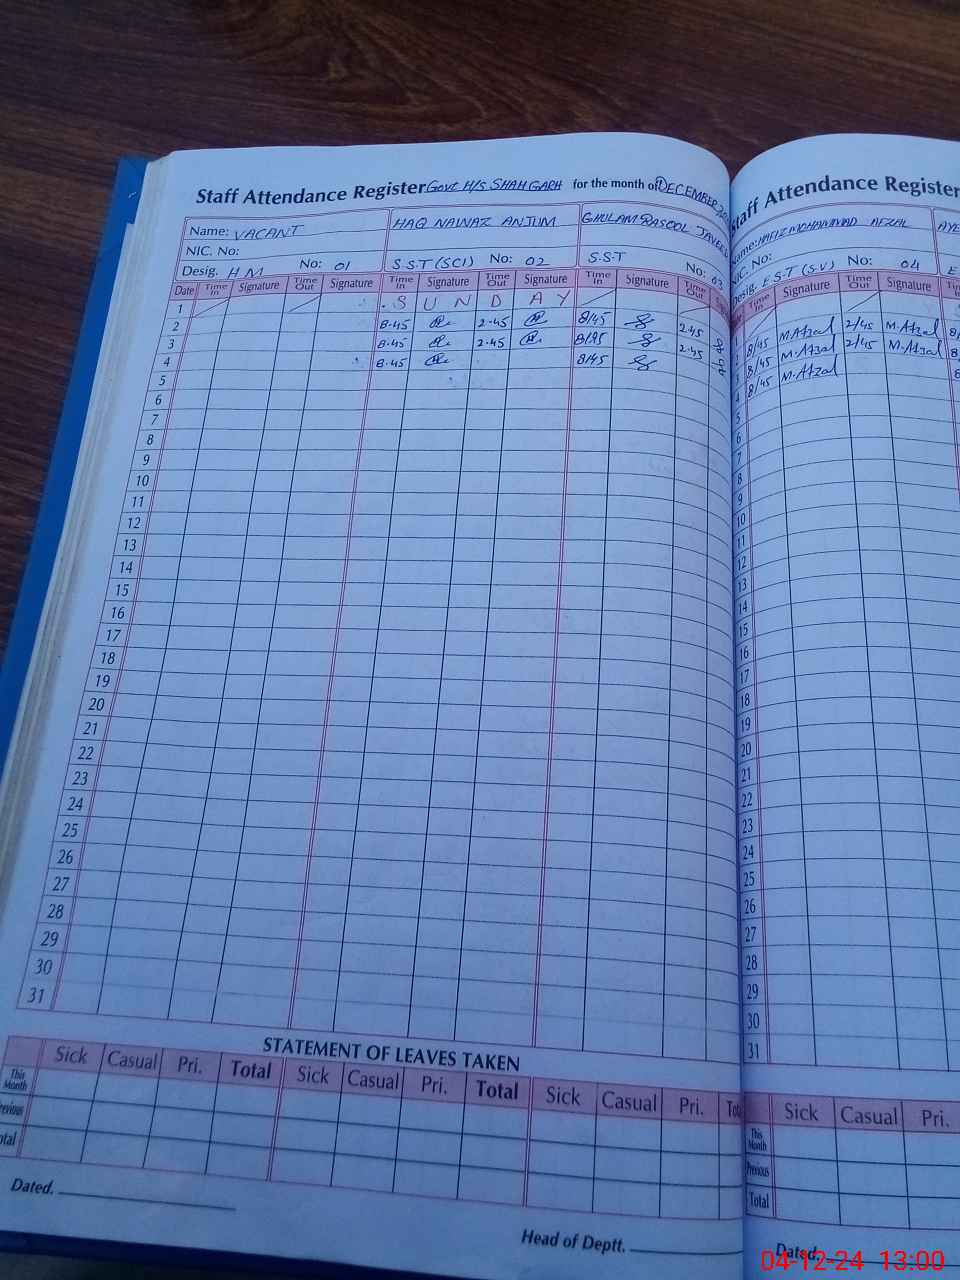 Staff Attendance Register Govt H/S SHAHGARH for the month of DECEMBER
Name: VACANT HAQ NAWAZ ANJUM GHULAM RASOOL JAVEED
NIC. No:
Desig. H M No: 01 S.S.T (SCI) No: 02 S.S.T No: 03
Date Time In Signature Time Out Signature Time In Signature Time Out Signature Time In Signature Time Out
1 S U N D A Y
2 8.45 2.45 8/45 2.45
3 8.45 2.45 8/45 2.45
4 8.45 8/45
5
6
7
8
9
10
11
12
13
14
15
16
17
18
19
20
21
22
23
24
25
26
27
28
29
30
31
STATEMENT OF LEAVES TAKEN
Sick Casual Pri. Total Sick Casual Pri. Total Sick Casual Pri.
This Month
Previous
Total
Dated.
Head of Deptt.
Staff Attendance Register
Name: HAFIZ MOHAMMAD AFZAL
NIC. No:
Desig. E.S.T (S.V) No: 04
Time In Signature Time Out Signature
8/45 M.Afzal 2/45 M.Afzal
8/45 M.Afzal 2/45 M.Afzal
8/45 M.Afzal
4
5
6
7
8
9
10
11
12
13
14
15
16
17
18
19
20
21
22
23
24
25
26
27
28
29
30
31
Sick Casual Pri.
This Month
Previous
Total
Dated.
04-12-24 13:00